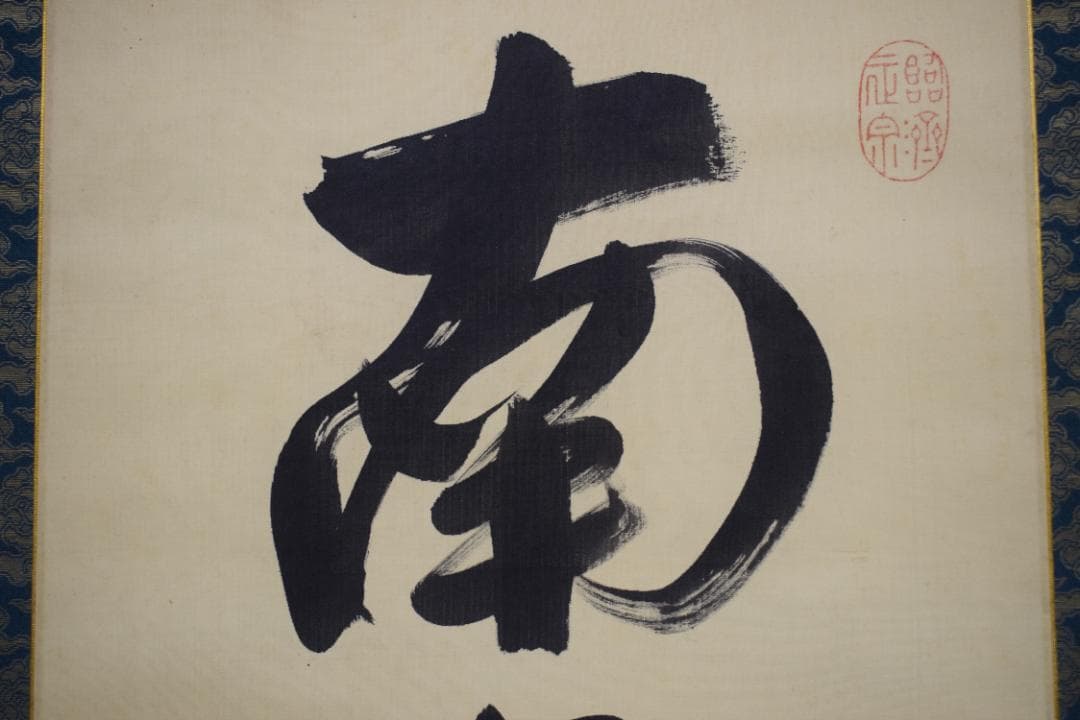 臨濟
正宗
南